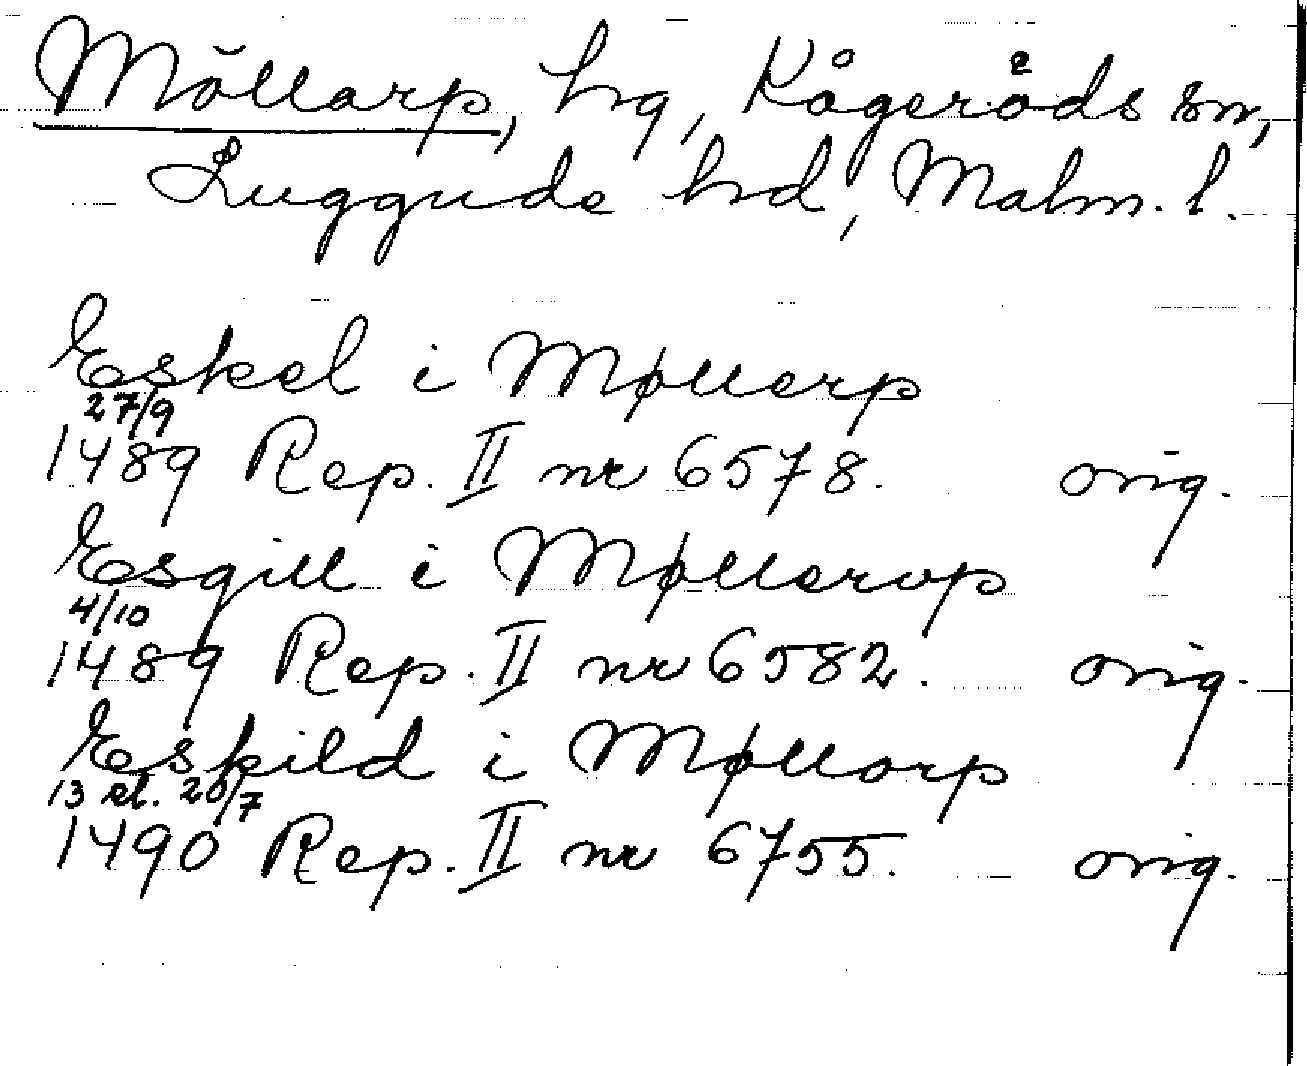 Möllarp, hg, Kågeröds sn,
Luggude hd, Malm. l.
Eskel i Møllerp
27/9
1489 Rep. II nr 6578. orig.
Esgill i Møllerop
4/10
1489 Rep. II nr 6582. orig.
Eskild i Møllorp
13 el. 20/7
1490 Rep. II nr 6755. orig.